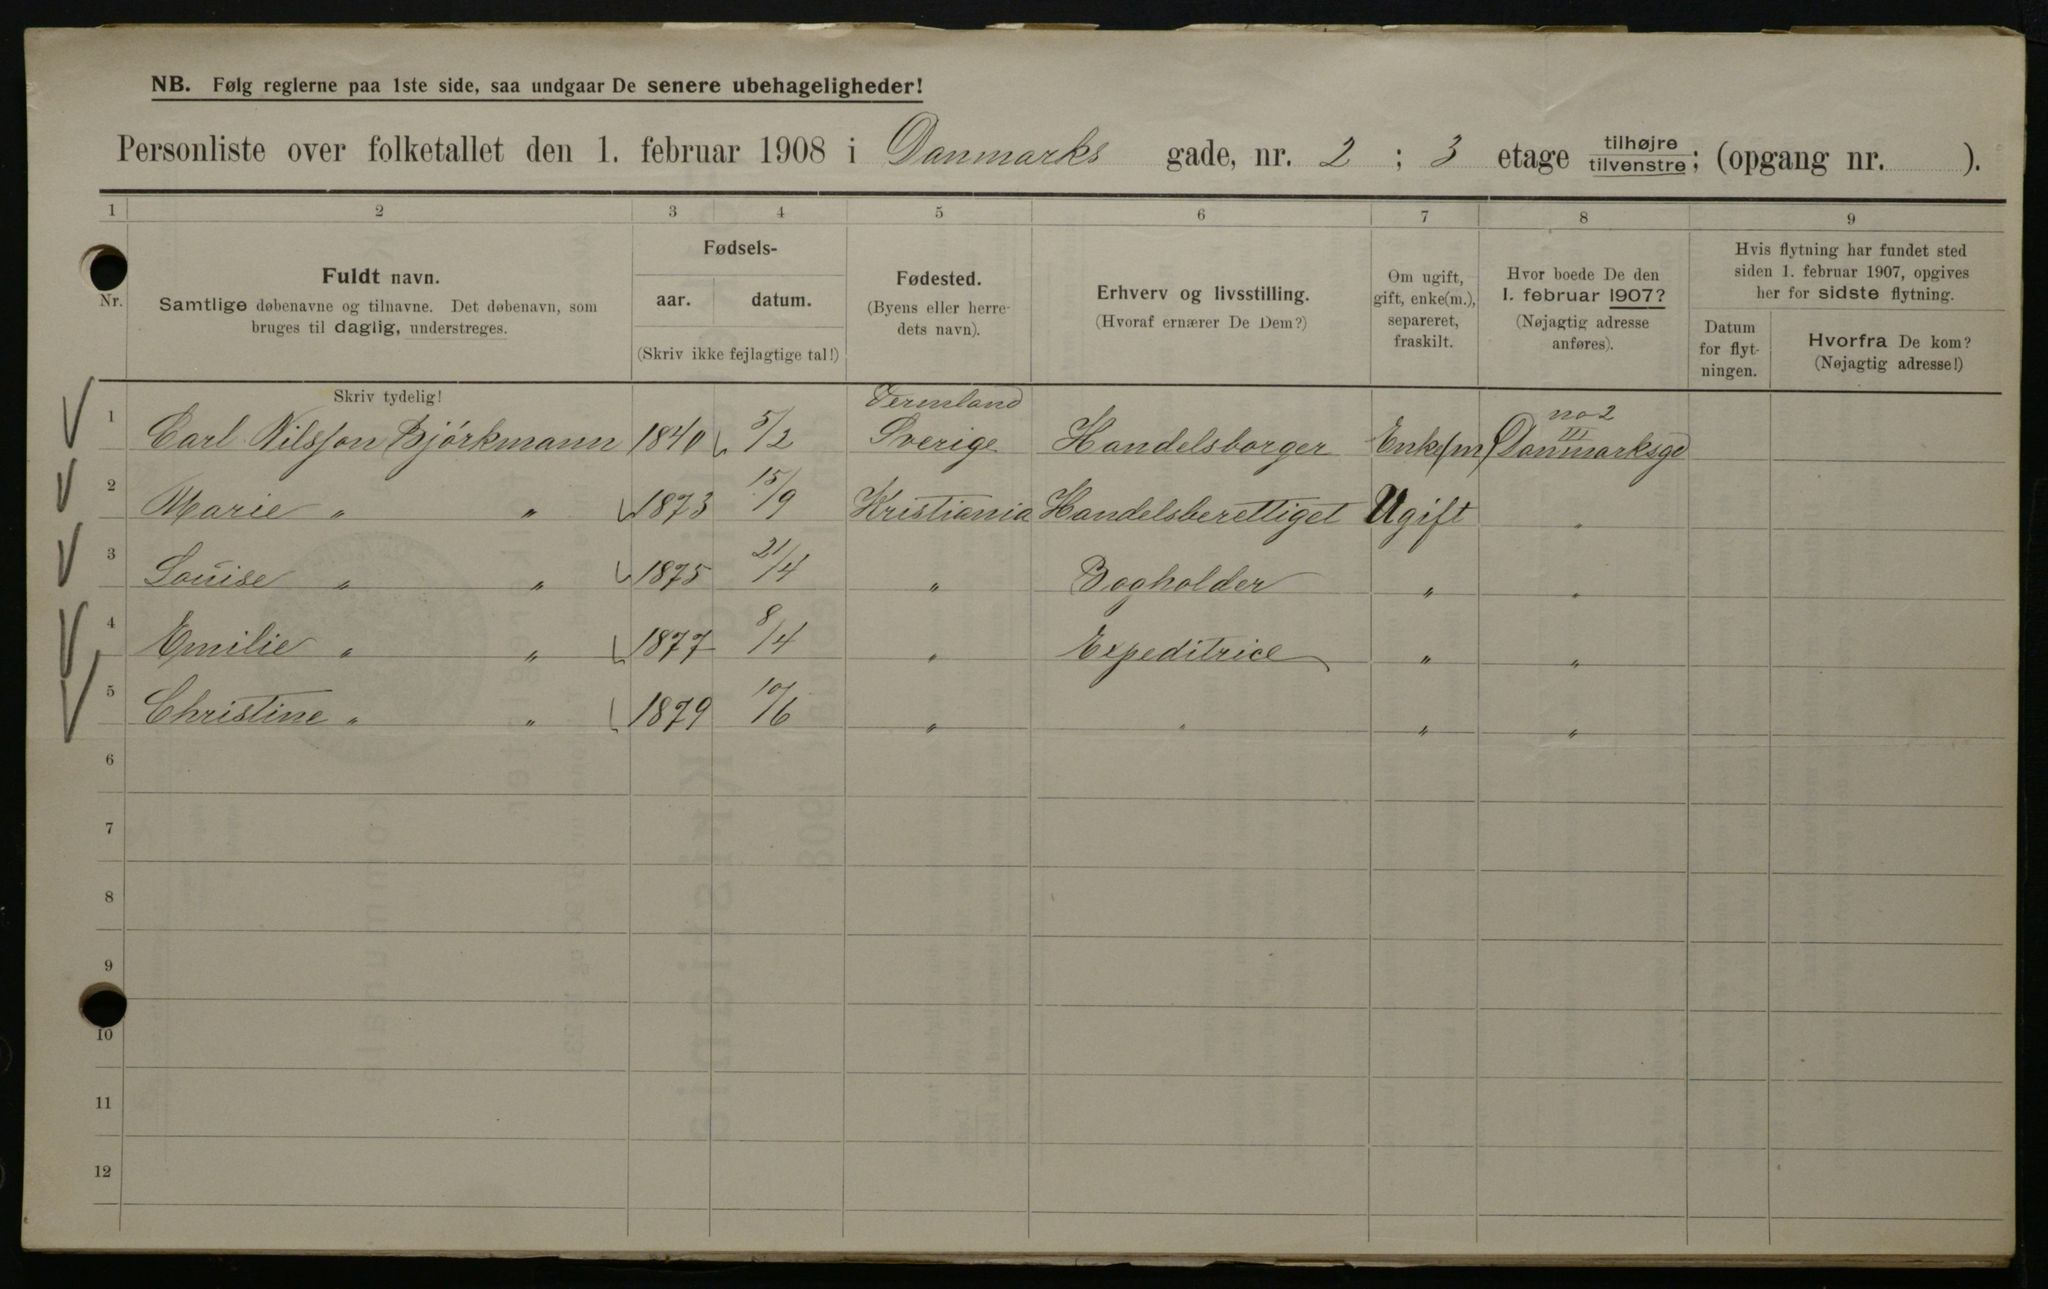 NB. Følg reglerne paa 1ste side, saa undgaar De senere ubehageligheder!
Personliste over folketallet den 1. februar 1908 i Danmarks gade, nr. 2 ; 3 etage tilhøjre tilvenstre; (opgang nr. ).
1 2 3 4 5 6 7 8 9
Nr.
Fuldt navn.
Samtlige døbenavne og tilnavne. Det døbenavn, som
bruges til daglig, understreges.
Skriv tydelig!
Fødsels-
aar. datum.
(Skriv ikke fejlagtige tal!)
Fødested.
(Byens eller herre-
dets navn).
Erhverv og livsstilling.
(Hvoraf ernærer De Dem?)
Om ugift,
gift, enke(m.),
separeret,
fraskilt.
Hvor boede De den
1. februar 1907?
(Nøjagtig adresse
anføres).
Hvis flytning har fundet sted
siden 1. februar 1907, opgives
her for sidste flytning.
Datum
for flyt-
ningen.
Hvorfra De kom?
(Nøjagtig adresse!)
Vermland no 2
III
1 Carl Nilsson Bjórkmann 1840 5/2 Sverige Handelsborger Enke(m) Danmarksgd
2 Marie " " 1873 15/9 Kristiania Handelsberettiget Ugift "
3 Louise " " 1875 21/4 " Bogholder " "
4 Emilie " " 1877 8/4 " Expeditrice " "
5 Christine " " 1879 10/6 " " " "
6
7
8
9
10
11
12